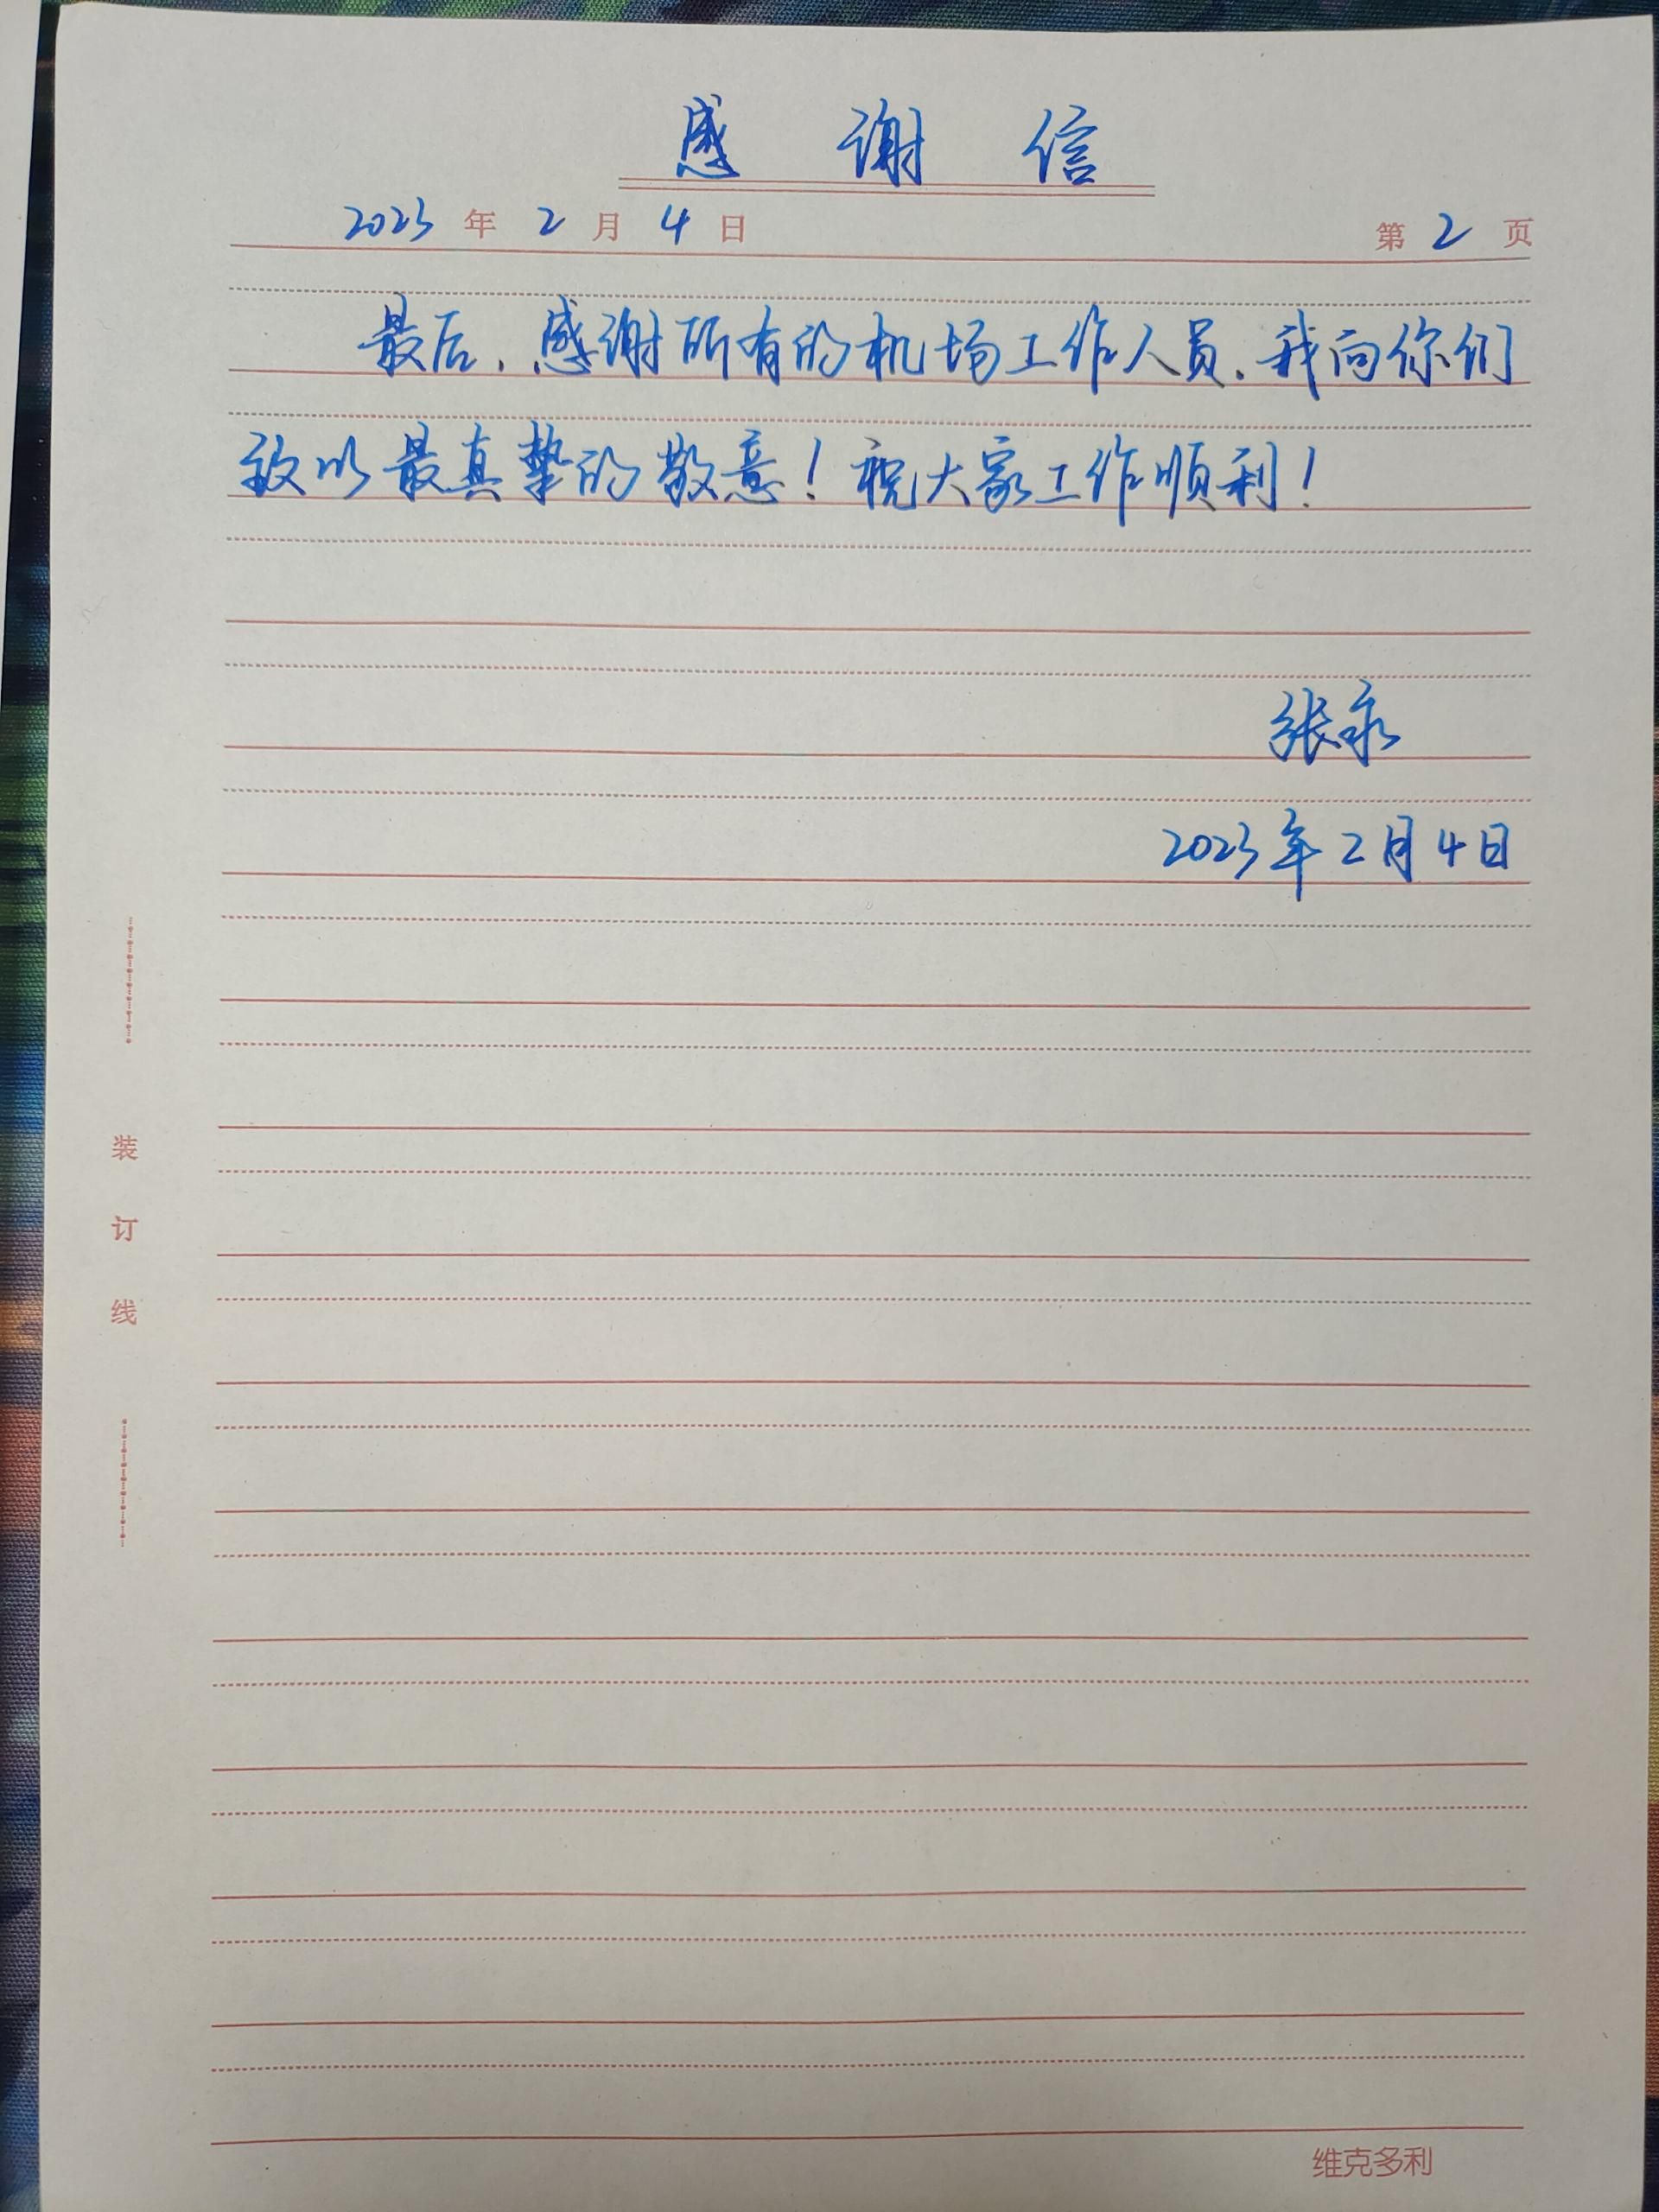 感谢信
2023年2月4日 第2页
最后，感谢所有的机场工作人员，我向你们
致以最真挚的敬意！祝大家工作顺利！
张永
2023年2月4日
装
订
线
维克多利